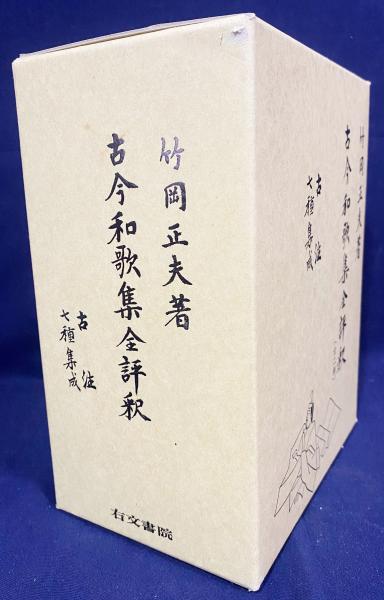 竹岡正夫著
古今和歌集全評釈
古注
七種集成
右文書院
竹岡正夫著
古今和歌集全評釈
古注
七種集成